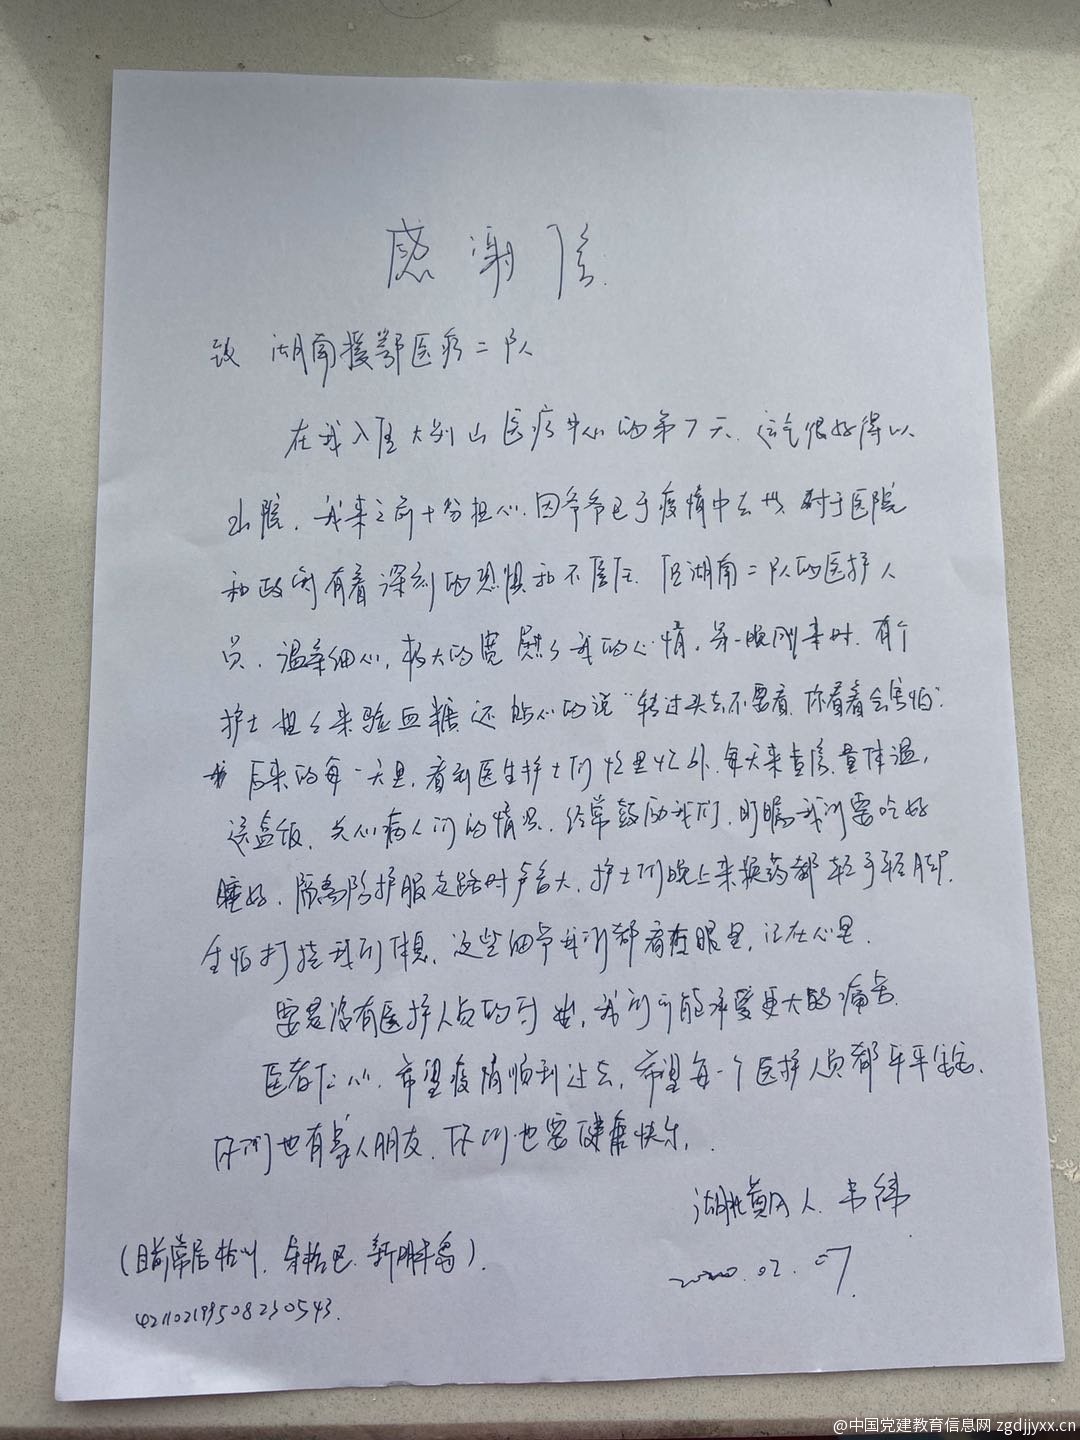 感谢信
致 湖南援鄂医疗二队
在我入住大别山医疗中心的第7天,运气很好得以
出院,我来之前十分担心,因爷爷已于疫情中去世,对于医院
和政府有着深刻的恐惧和不信任,但湖南二队的医护人
员,温柔细心,极大的宽慰了我的心情,第一晚刚来时,有个
护士姐姐来验血糖,还贴心的说“转过头去不要看,你看着会害怕”
后来的每一天里,看到医生护士们忙里忙外,每天来查房,量体温,
送盒饭,关心病人们的情况,经常鼓励我们,叮嘱我们要吃好
睡好,隔离防护服走路时声音大,护士们晚上来换药都轻手轻脚,
生怕打扰我们休息,这些细节我们都看在眼里,记在心里.
要是没有医护人员的付出,我们可能承受更大的痛苦.
医者仁心,希望疫情顺利过去,希望每一个医护人员都平平安安,
你们也有家人朋友,你们也要健康快乐.
湖北黄冈人 韦纬
(目前常居杭州, )
2020.02.07
421102199508230543.
@中国党建教育信息网 zgdjjyxx.cn